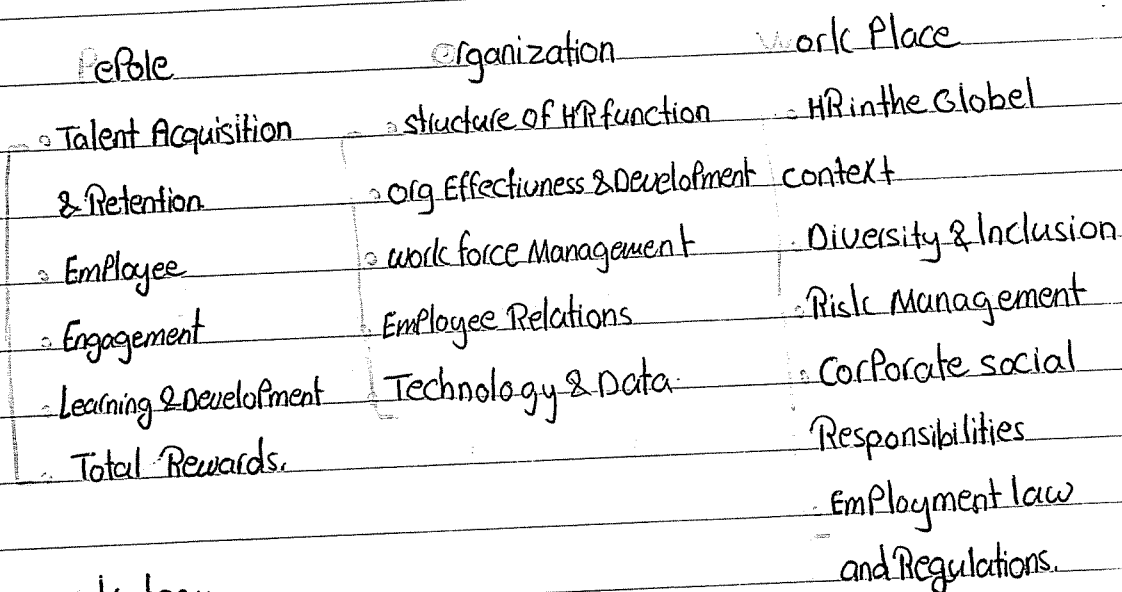 PePole
Organization
Work Place
Talent Acquisition
& Retention
Employee
Engagement
Learning & Development
Total Rewards.
structure of HR function
org Effectivness & Development
work force Management
Employee Relations
Technology & Data
HR in the Globel
context
Diversity & Inclusion
Risk Management
Corporate social
Responsibilities
Employment law
and Regulations.